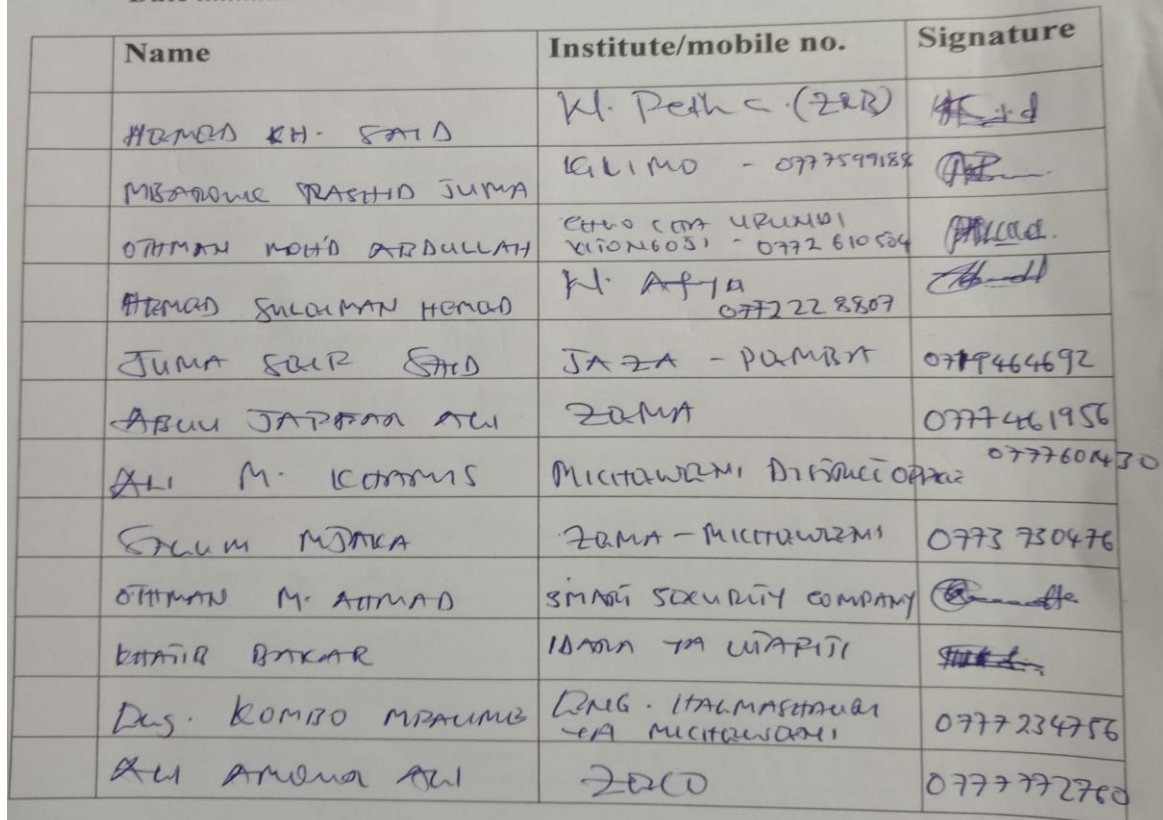 Name Institute/mobile no. Signature
HEMED KH. SAID Kl. Pemba (ZRB)
MBAROUK RASHID JUMA KILIMO - 0777599188
OTHMAN MOH'D ABDULLAH URUNDI
- 0772 610504
HEMED SULEIMAN HEMED Kl. Afya
0772228807
JUMA SAID JAZA - PEMBA 0719464692
JAFFAR ALI ZEMA 0777461956
ALI M. KHAMIS MICHEWENI DISTRICT OFFICE 0777601430
SALUM MJAKA ZEMA - MICHEWENI 0773 730476
OTHMAN M. AHMAD SMART SECURITY COMPANY
KHATIB BAKAR IDARA YA UTAFITI
KOMBO
YA MICHEWENI 0777234756
ALI ALI ZECO 0777772760